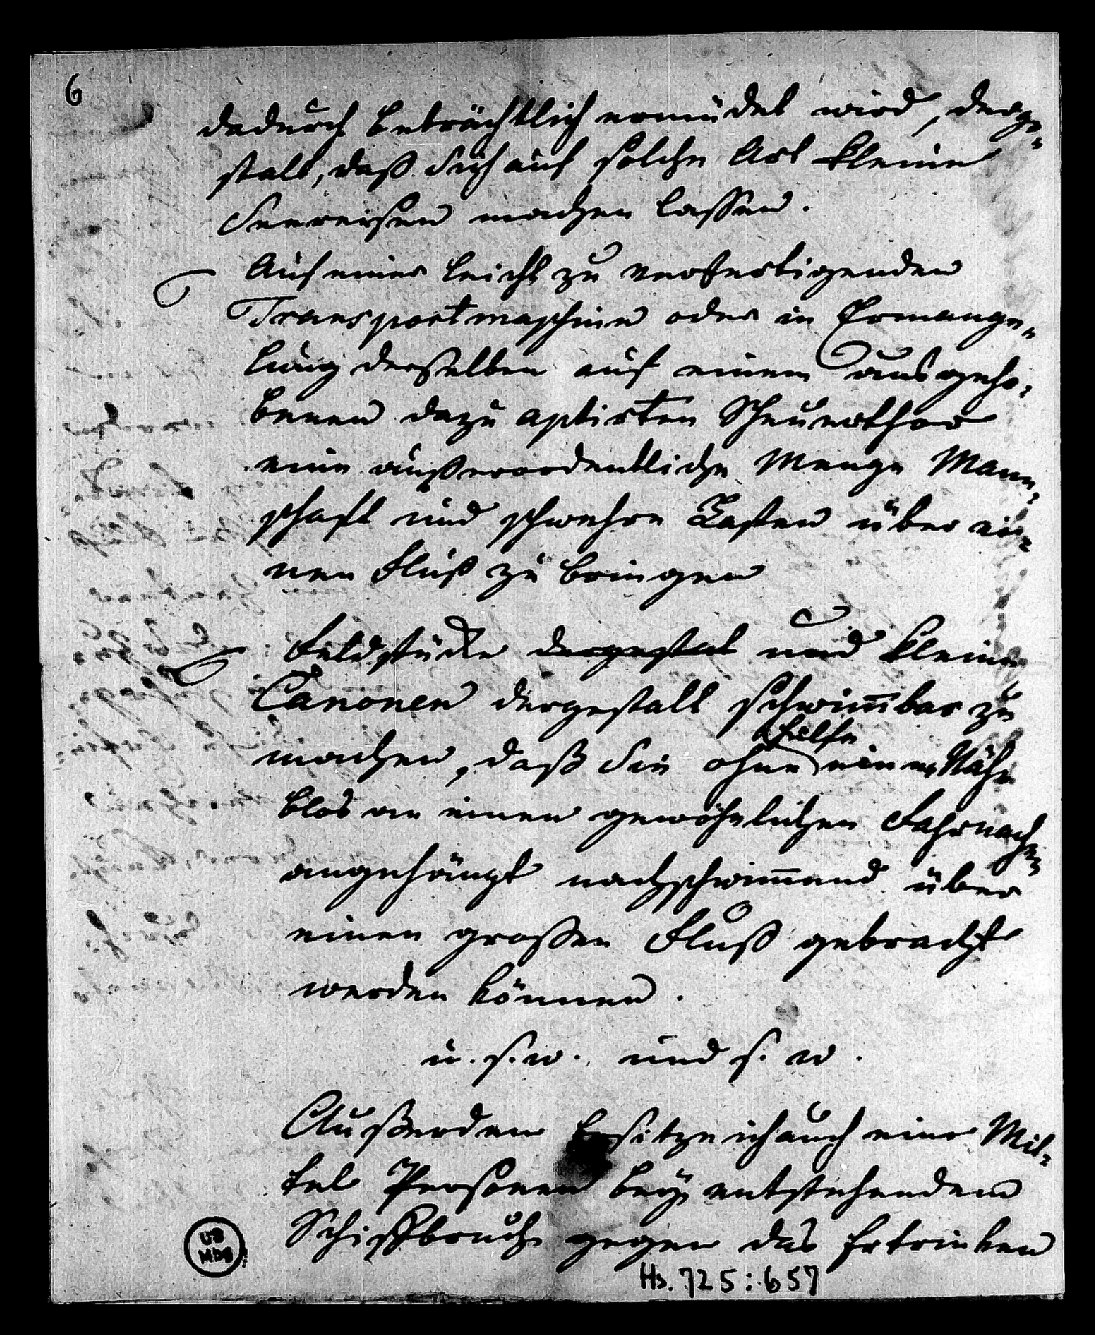 6
dadurch beträchtlich ermüdet wird, derge-
stalt, daß sich auf solche Art kleine
Seereisen machen lassen.
Auf einer leicht zu verfertigenden
Transportmaschine oder in Ermange-
lung derselben auf einem ausgeho-
benen dazu aptirten Scheuerthor
eine außerordentliche Menge Mann-
schaft und schwehre Lasten über ei-
nen Fluß zu bringen
Feldstücke dergestalt und kleine
Canonen dergestalt schwimmbar zu
machen, daß sie ohne Hülfe einer Nähe
blos an einen gewöhnlichen Fahrnachen
angehängt nachschwimmend über
einen großen Fluß gebracht
werden können.
u. s. w. und s. w.
Außerdem besitze ich auch eine Mit-
tel Personen bey entstehendem
Schiffbruch gegen das Ertrinken
UB
MDG
Hs. 725:657